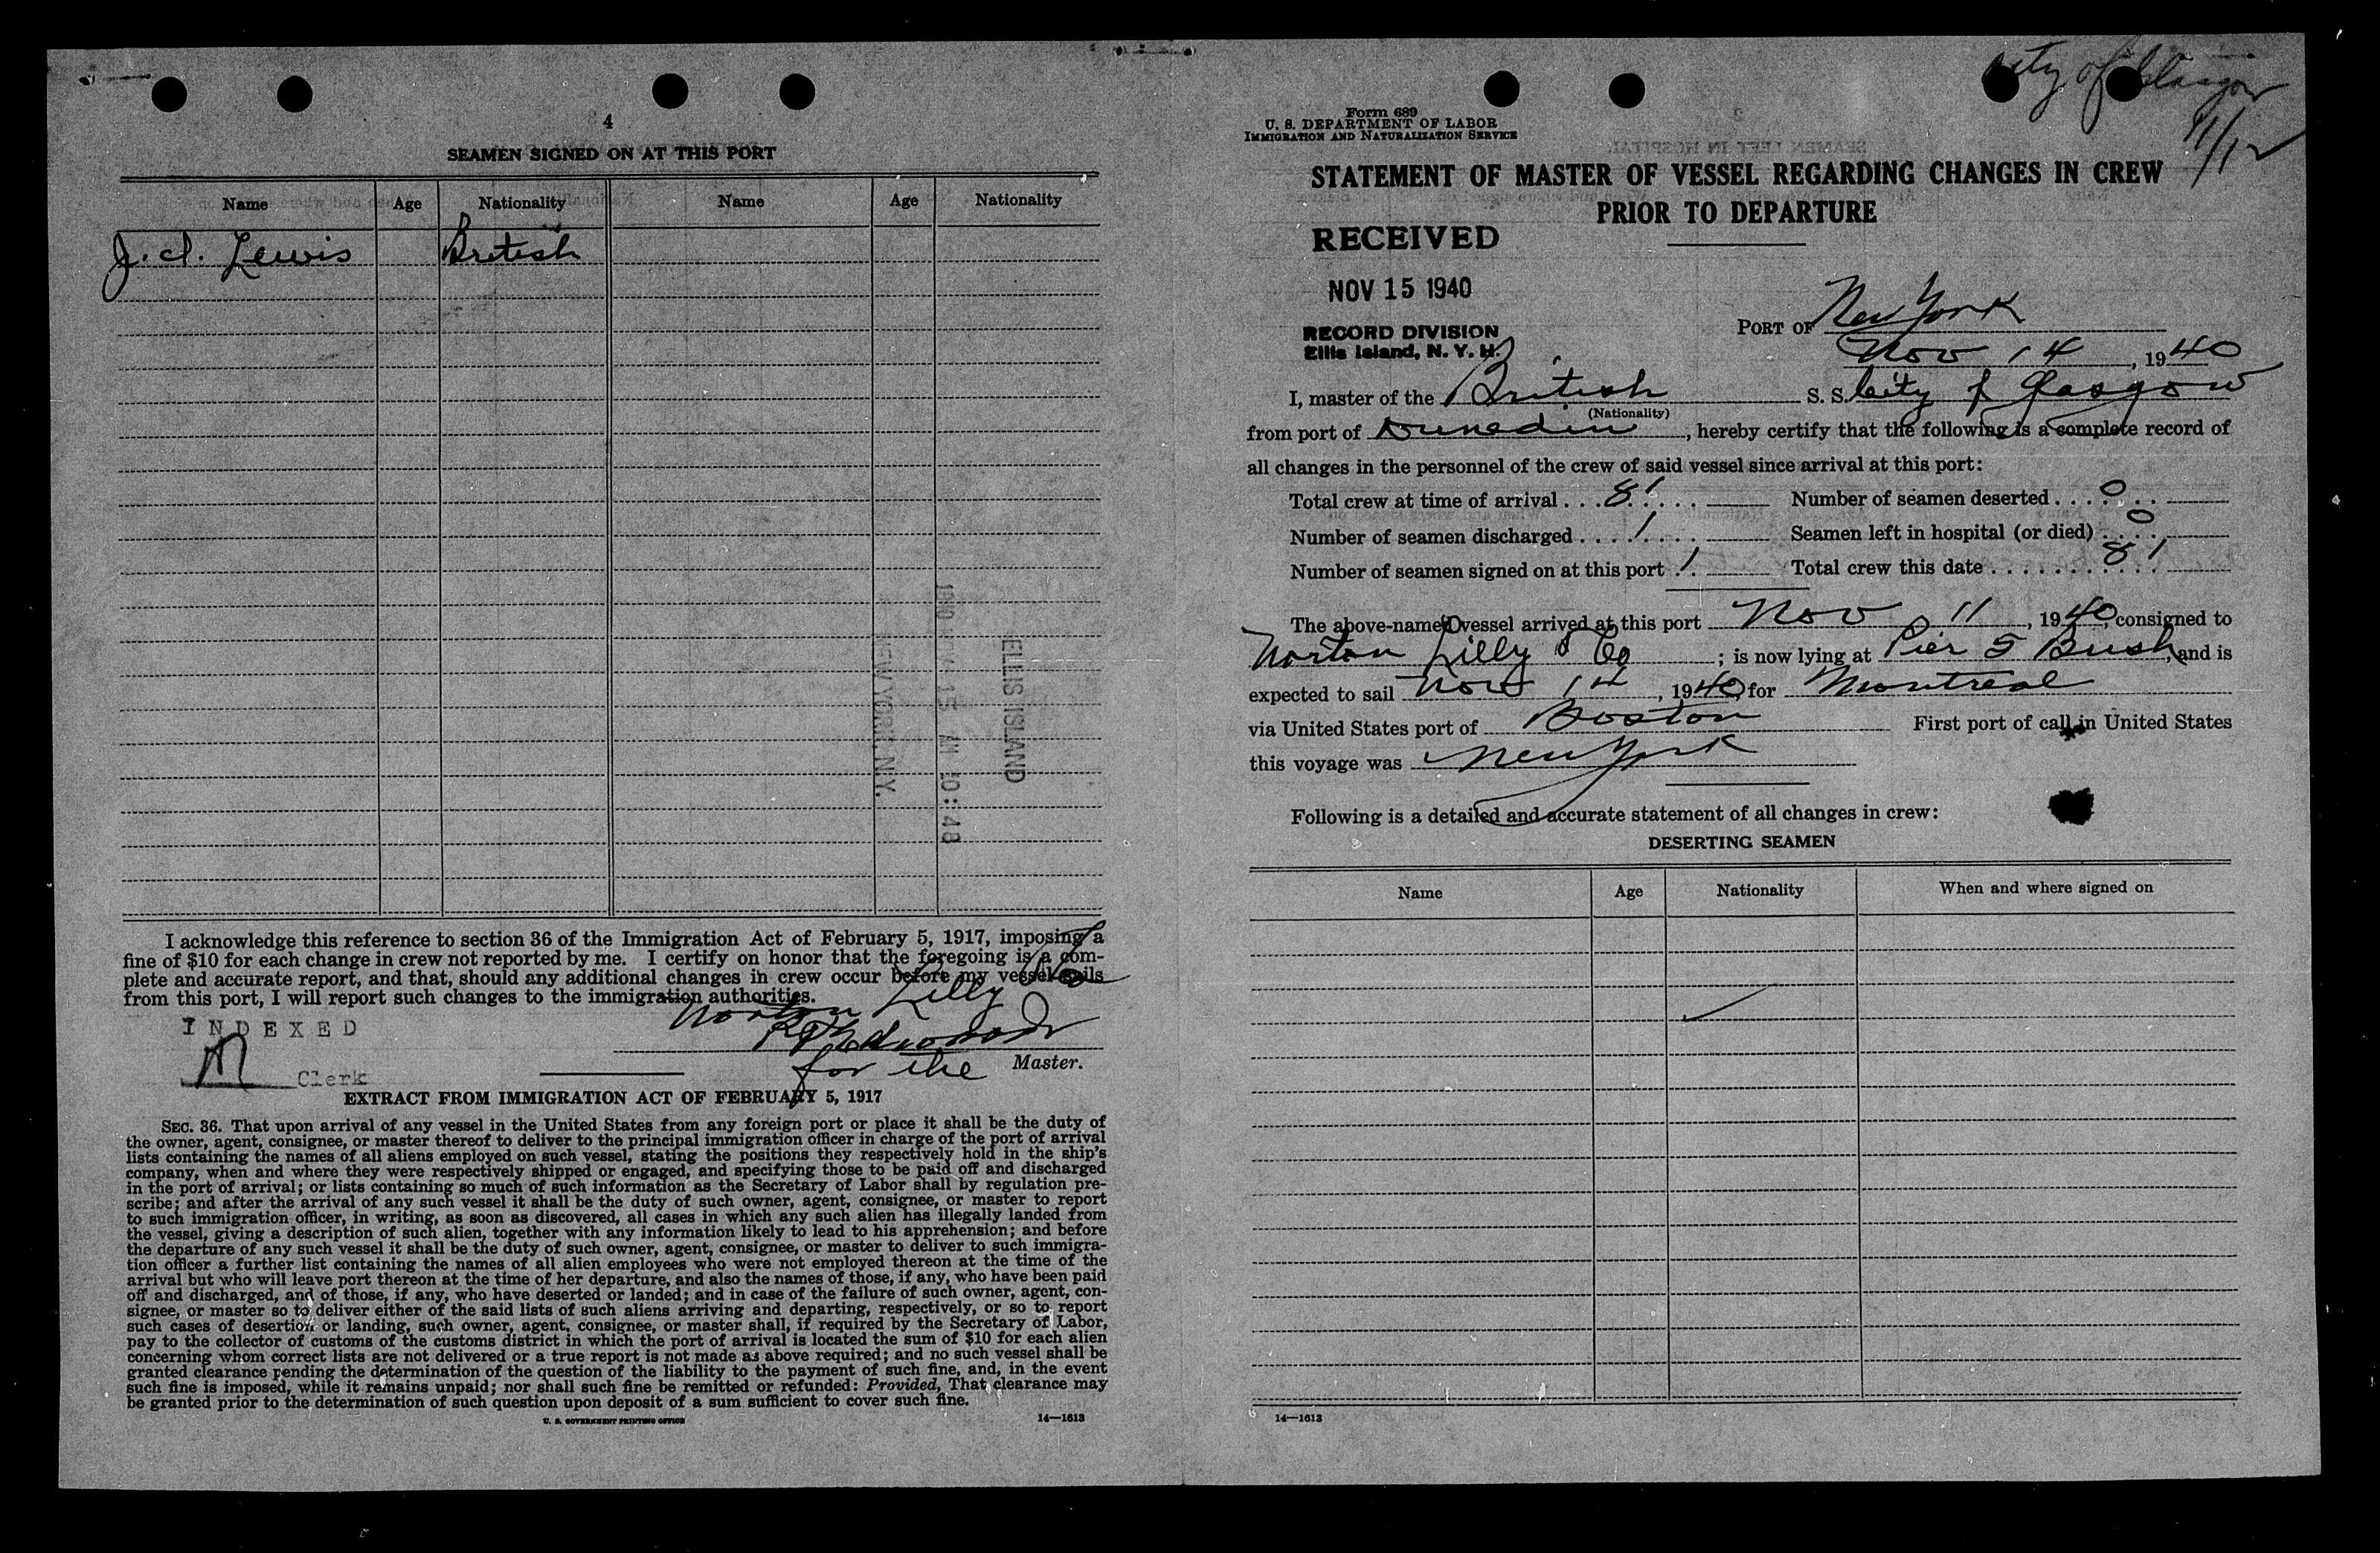 4
SEAMEN SIGNED ON AT THIS PORT
Name Age Nationality Name Age Nationality
J. Lewis British
ELLIS ISLAND
15 AM 10:48
NEW YORK, N.Y.
I acknowledge this reference to section 36 of the Immigration Act of February 5, 1917, imposing a
fine of $10 for each change in crew not reported by me. I certify on honor that the foregoing is a com-
plete and accurate report, and that, should any additional changes in crew occur before my vessel sails
from this port, I will report such changes to the immigration authorities.
Norton Lilly & Co
INDEXED
M Clerk
for the Master.
EXTRACT FROM IMMIGRATION ACT OF FEBRUARY 5, 1917
SEC. 36. That upon arrival of any vessel in the United States from any foreign port or place it shall be the duty of
the owner, agent, consignee, or master thereof to deliver to the principal immigration officer in charge of the port of arrival
lists containing the names of all aliens employed on such vessel, stating the positions they respectively hold in the ship's
company, when and where they were respectively shipped or engaged, and specifying those to be paid off and discharged
in the port of arrival; or lists containing so much of such information as the Secretary of Labor shall by regulation pre-
scribe; and after the arrival of any such vessel it shall be the duty of such owner, agent, consignee, or master to report
to such immigration officer, in writing, as soon as discovered, all cases in which any such alien has illegally landed from
the vessel, giving a description of such alien, together with any information likely to lead to his apprehension; and before
the departure of any such vessel it shall be the duty of such owner, agent, consignee, or master to deliver to such immigra-
tion officer a further list containing the names of all alien employees who were not employed thereon at the time of the
arrival but who will leave port thereon at the time of her departure, and also the names of those, if any, who have been paid
off and discharged, and of those, if any, who have deserted or landed; and in case of the failure of such owner, agent, con-
signee, or master so to deliver either of the said lists of such aliens arriving and departing, respectively, or so to report
such cases of desertion or landing, such owner, agent, consignee, or master shall, if required by the Secretary of Labor,
pay to the collector of customs of the customs district in which the port of arrival is located the sum of $10 for each alien
concerning whom correct lists are not delivered or a true report is not made as above required; and no such vessel shall be
granted clearance pending the determination of the question of the liability to the payment of such fine, and, in the event
such fine is imposed, while it remains unpaid; nor shall such fine be remitted or refunded: Provided, That clearance may
be granted prior to the determination of such question upon deposit of a sum sufficient to cover such fine.
U. S. GOVERNMENT PRINTING OFFICE 14—1613
City of Glasgow
11/12
Form 689
U. S. DEPARTMENT OF LABOR
IMMIGRATION AND NATURALIZATION SERVICE
STATEMENT OF MASTER OF VESSEL REGARDING CHANGES IN CREW
PRIOR TO DEPARTURE
RECEIVED
NOV 15 1940
RECORD DIVISION
Ellis Island, N. Y. H.
PORT OF New York
Nov 14, 1940
I, master of the British S. S. City of Glasgow
(Nationality)
from port of Dunedin, hereby certify that the following is a complete record of
all changes in the personnel of the crew of said vessel since arrival at this port:
Total crew at time of arrival . . . 81 . . . . Number of seamen deserted . . . 0 . .
Number of seamen discharged . . . . 1 . . . . Seamen left in hospital (or died) . . 0 . .
Number of seamen signed on at this port . 1 . Total crew this date . . . . . . . . 81 . .
The above-named vessel arrived at this port Nov 11, 1940, consigned to
Norton Lilly & Co; is now lying at Pier 5 Bush, and is
expected to sail Nov 14, 1940, for Montreal
via United States port of Boston First port of call in United States
this voyage was New York
Following is a detailed and accurate statement of all changes in crew:
DESERTING SEAMEN
Name Age Nationality When and where signed on
14—1613